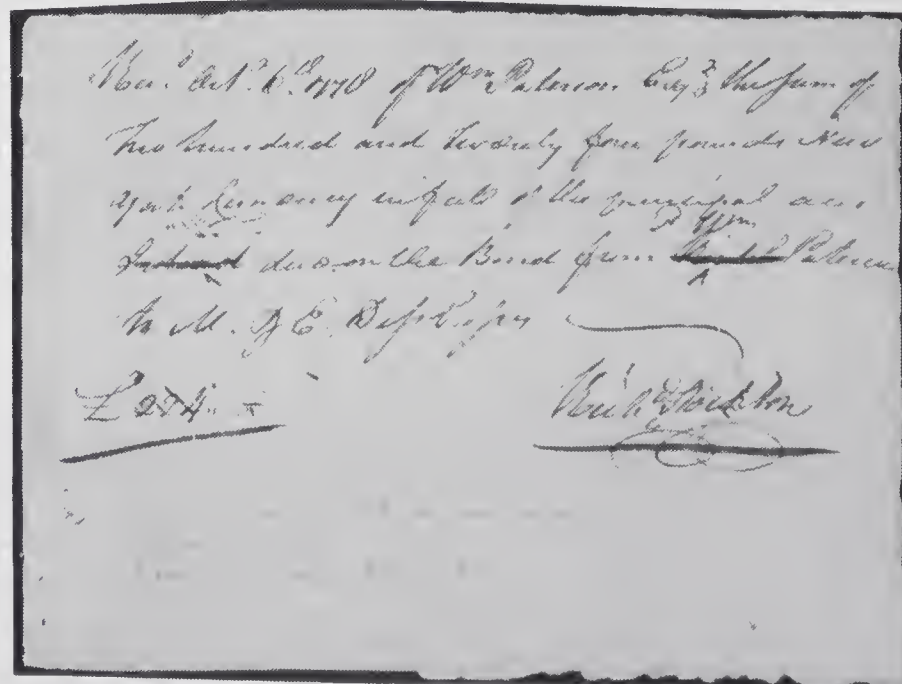 Rec.d Oct.r 6.th 1778 of Wm Paterson Esq.r the Sum of
Two hundred and twenty four pounds New
York Currency in full of the principal and
due on the Bond from Wm Paterson
to M. & E.
£ 224
Rich.d Stockton